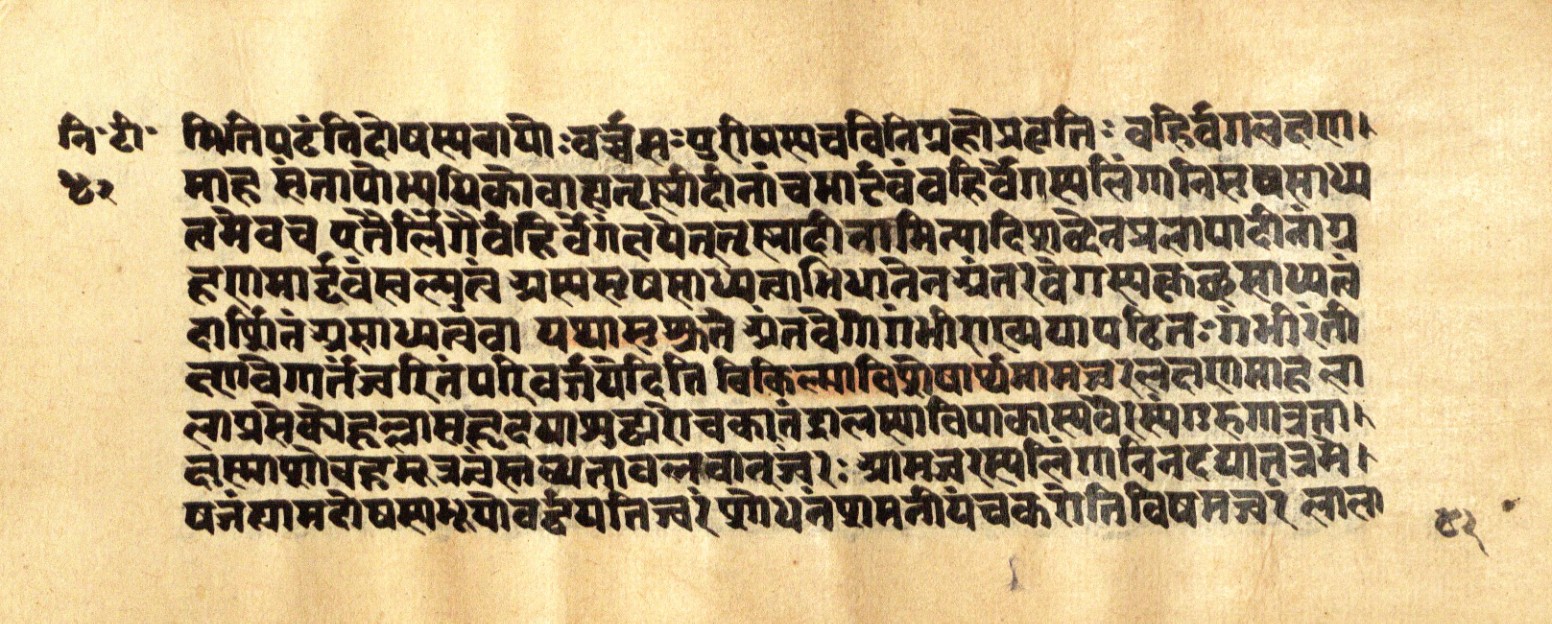 नि॰ टी॰
४२
मितिपटंतिदोषस्यवायोः वर्च्चसः पुरीषस्यचविनिग्रहोप्रवृत्तिः वहिर्वेगलक्षण।
माह संतापोभ्यधिकोवाह्यतृष्लादीनांचमार्द्दवंवहिर्वेगस्यलिंगानिसुखसाध्य
त्वमेवच एतैर्लिंगैर्वहिर्वेगंलक्षयेत्तृष्लादीनामित्यादिशब्देनप्रलापादीनांग्र
हणमार्द्दवंस्वल्पत्वं अस्यसुषसाध्यत्वाभिधानेनअंतरवेगस्यकृच्छ्रसाध्यत्वं
दर्शितंअसाध्यत्वंवा यथासुश्रुते अंतर्वेगोगंभीराख्ययापठितः गंभीरती
क्ष्णवेगार्तंज्वरितंपरिवर्ज्जयेदिति चिकित्साविशेषार्थमामज्वरलक्षणमाह ला
लाप्रसेकोहृल्लासहृदयाशुद्ध्यरोचकातंद्रालस्याविपाकास्यवैरस्यंगुरुगात्रता।
क्षुन्नाशोबहुमूत्रत्वंस्तब्धताबलवान्ज्वरः आमज्वरस्यलिंगानिनदद्यात्तत्रभे।
षजंह्यामदोषस्यभूयोवर्द्धयतिज्वरं शोधनंशमनीयंचकरोतिविषमज्वरं लाला
४२